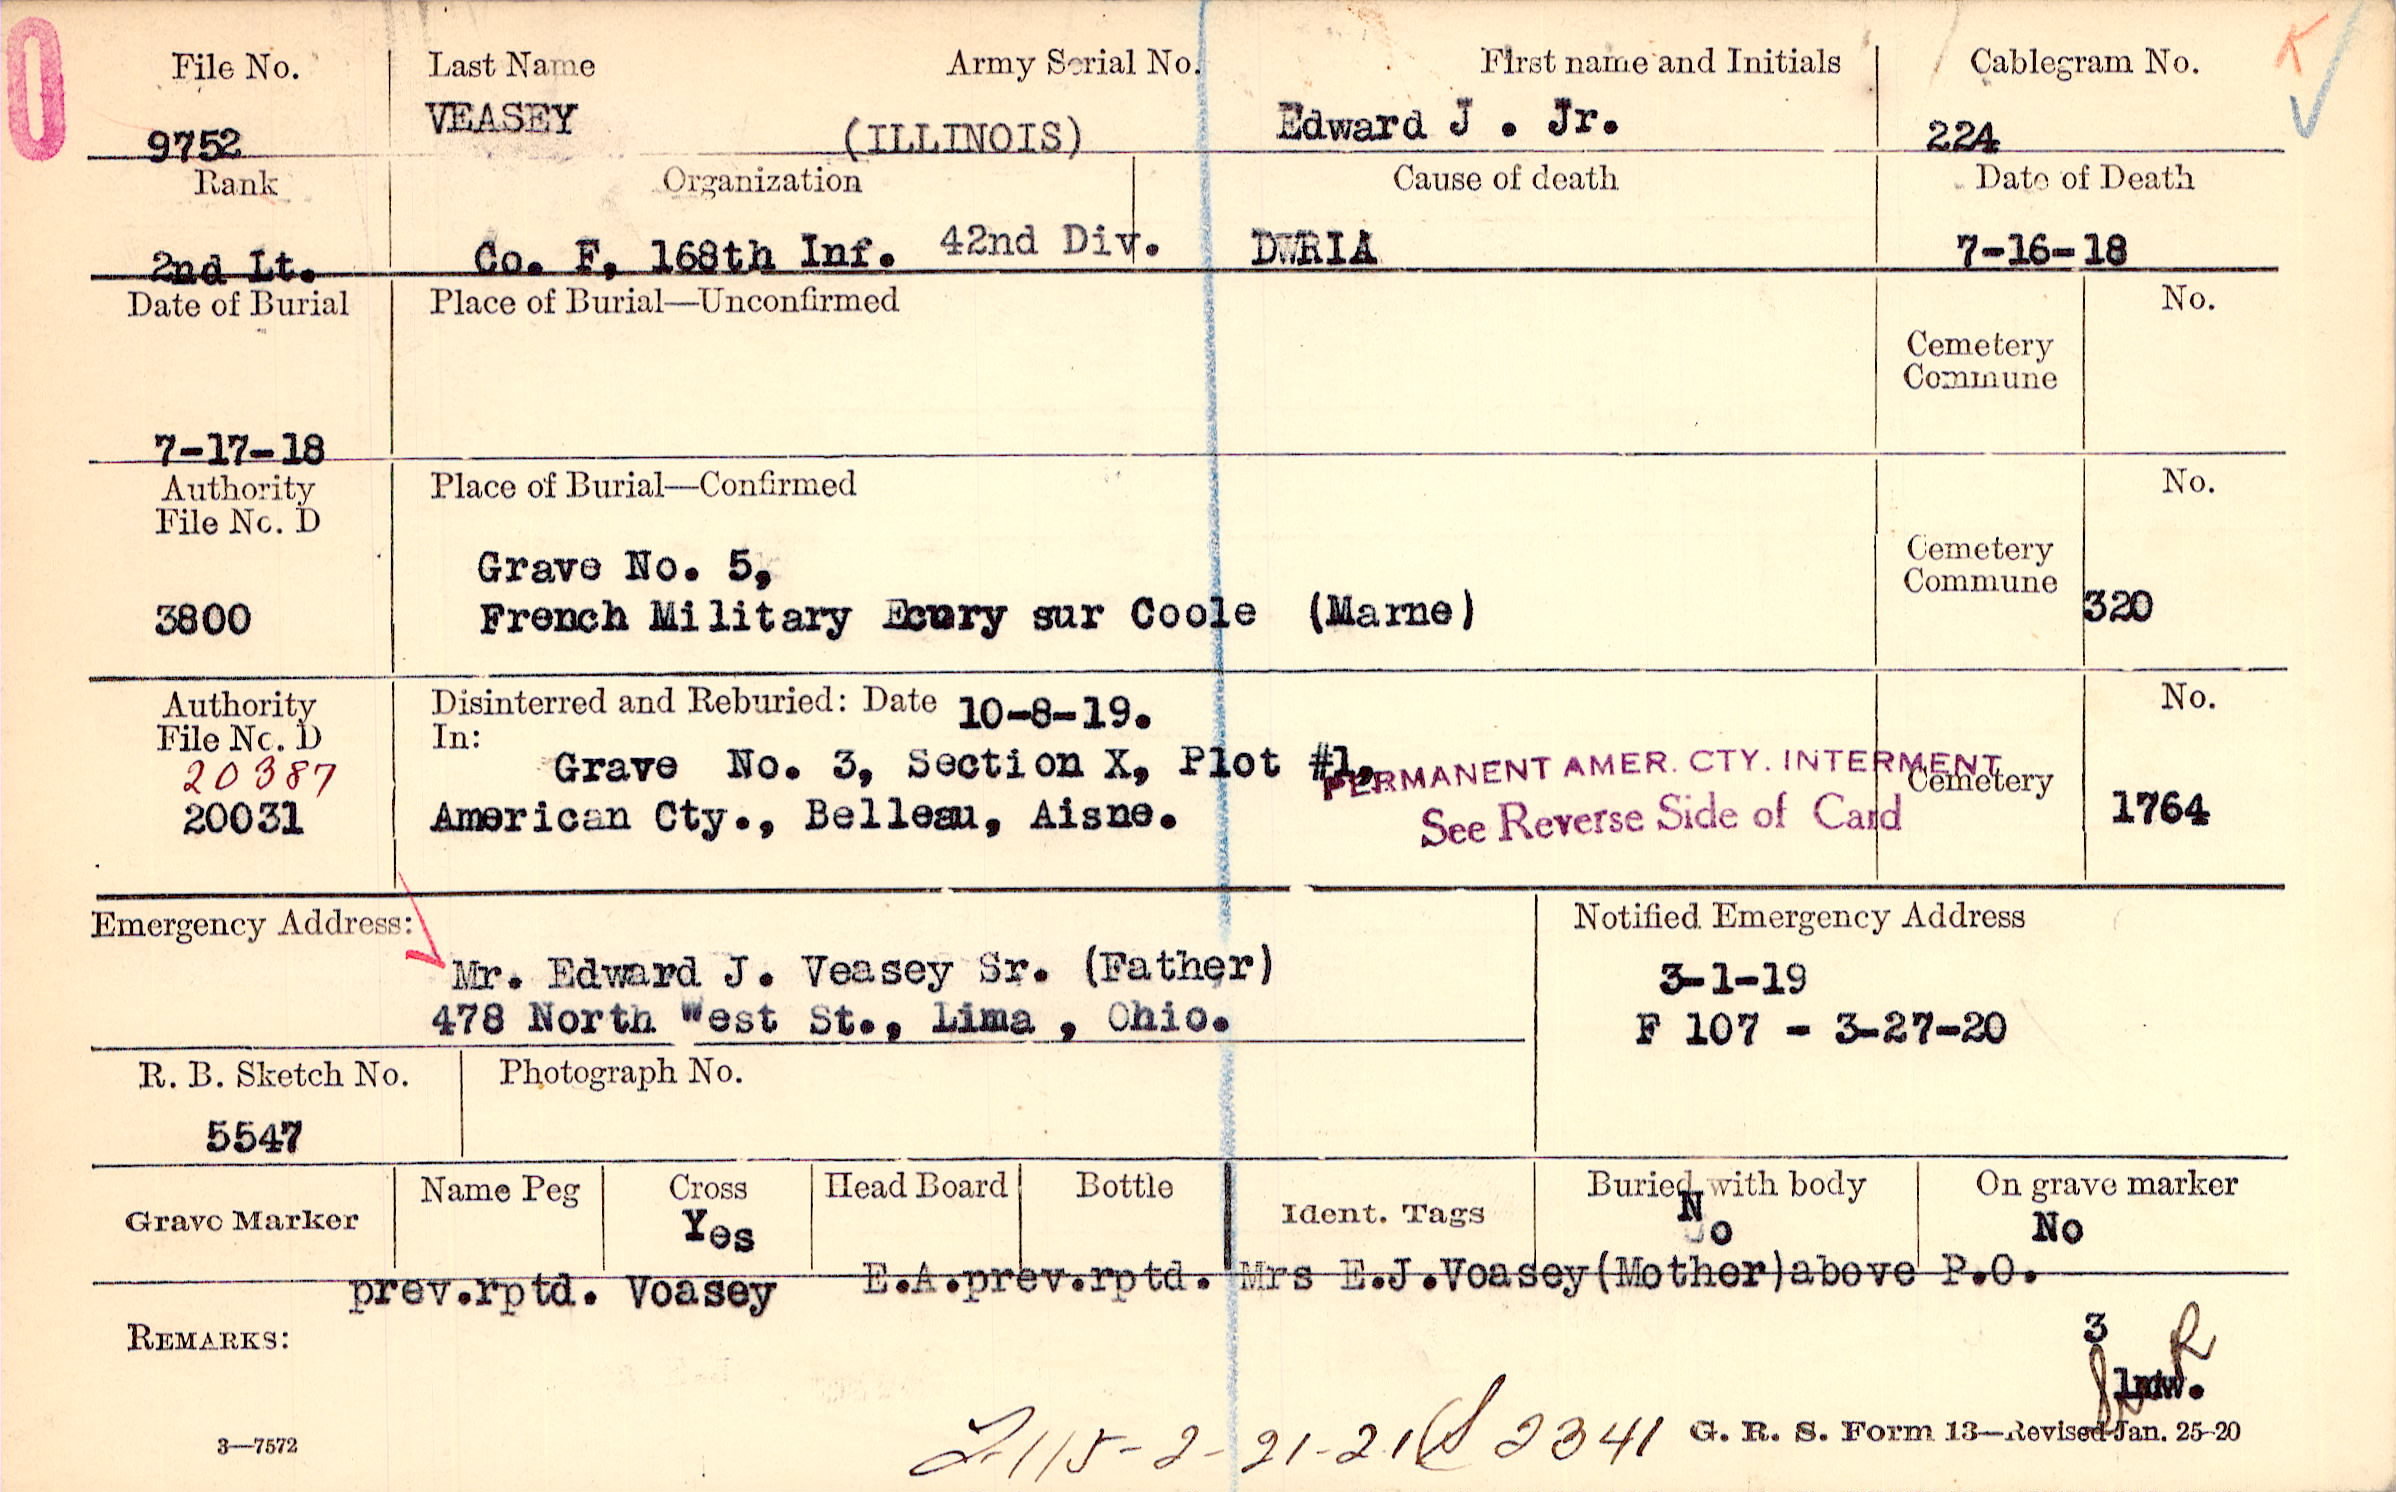 File No. Last Name Army Serial No. First name and Initials Cablegram No.
9752 VEASEY (ILLINOIS) Edward J . Jr. 224
Rank Organization Cause of death Date of Death
2nd Lt. Co. F, 168th Inf. 42nd Div. DWRIA 7-16-18
Date of Burial Place of Burial—Unconfirmed No.
Cemetery
Commune
7-17-18
Authority Place of Burial—Confirmed No.
File No. D
Grave No. 5, Cemetery
Commune
3800 French Military Ecury sur Coole (Marne) 320
Authority Disinterred and Reburied: Date 10-8-19. No.
File No. D In:
20387 Grave No. 3, Section X, Plot #1, PERMANENT AMER. CTY. INTERMENT
Cemetery
20031 American Cty., Belleau, Aisne. See Reverse Side of Card 1764
Emergency Address: Notified Emergency Address
Mr. Edward J. Veasey Sr. (Father) 3-1-19
478 North West St., Lima , Ohio. F 107 - 3-27-20
R. B. Sketch No. Photograph No.
5547
Grave Marker Name Peg Cross Head Board Bottle Ident. Tags Buried with body On grave marker
Yes No No
prev.rptd. Voasey E.A.prev.rptd. Mrs E.J.Voasey(Mother)above P.O.
REMARKS: 3
lmw.
2341
3—7572 G. R. S. Form 13—Revised Jan. 25-20